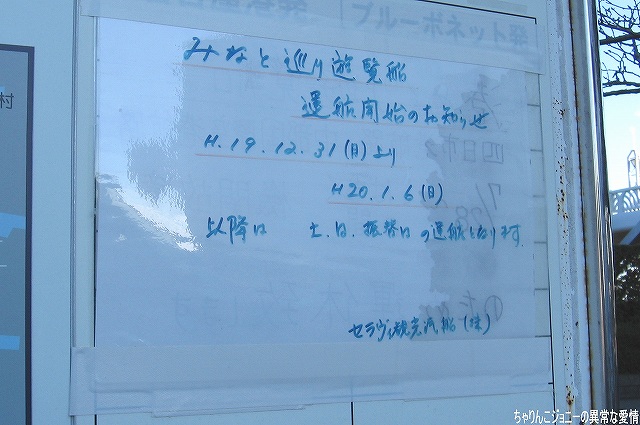 みなと巡り遊覧船
運航開始のお知らせ
H.19.12.31(日)より
H20.1.6(日)
以降は 土.日.振替日の運航となります.
セラヴィ観光汽船(株)
ブルーボネット発
四日市
村
ちゃりんこジョニーの異常な愛情